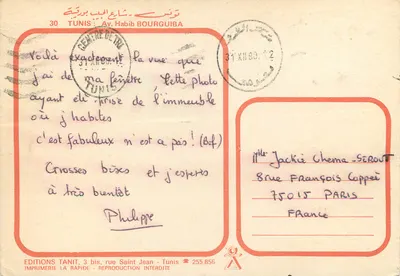 تونس - شارع الحبيب بورقيبة
30 TUNIS : Av. Habib BOURGUIBA
CENTRE DE TRI
TUNIS
31 XII 80
Voilà exactement la vue que
j'ai de ma fenêtre Cette photo
ayant été prise de l'immeuble
où j'habites
c'est fabuleux n'est a pas! (Bof)
Grosses bises et j'espère
à très bientôt
Philippe
Mlle Jackie Chema-SEROUT
8 rue François Coppée
75015 PARIS
France
EDITIONS TANIT, 3 bis, rue Saint Jean - Tunis ☎ 255.856
IMPRIMERIE LA RAPIDE - REPRODUCTION INTERDITE